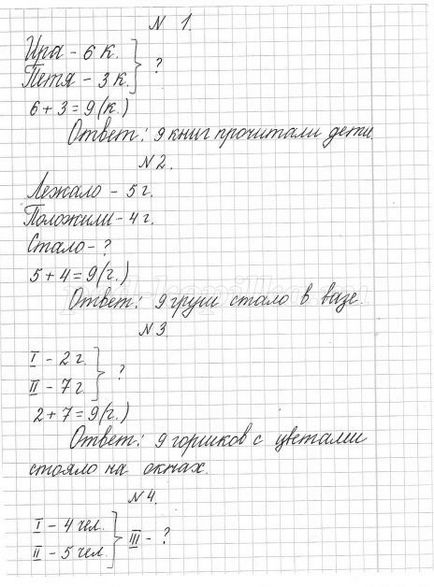 N 1.
Ира - 6 к.
Петя - 3 к. } ?
6 + 3 = 9 (к.)
Ответ: 9 книг прочитали дети.
N 2.
Лежало - 5 г.
Положили - 4 г.
Стало - ?
5 + 4 = 9 (г.)
Ответ: 9 груш стало в вазе.
N 3.
I - 2 г.
II - 7 г. } ?
2 + 7 = 9 (г.)
Ответ: 9 горшков с цветами
стояло на окнах.
N 4.
I - 4 чел.
II - 5 чел. } III - ?